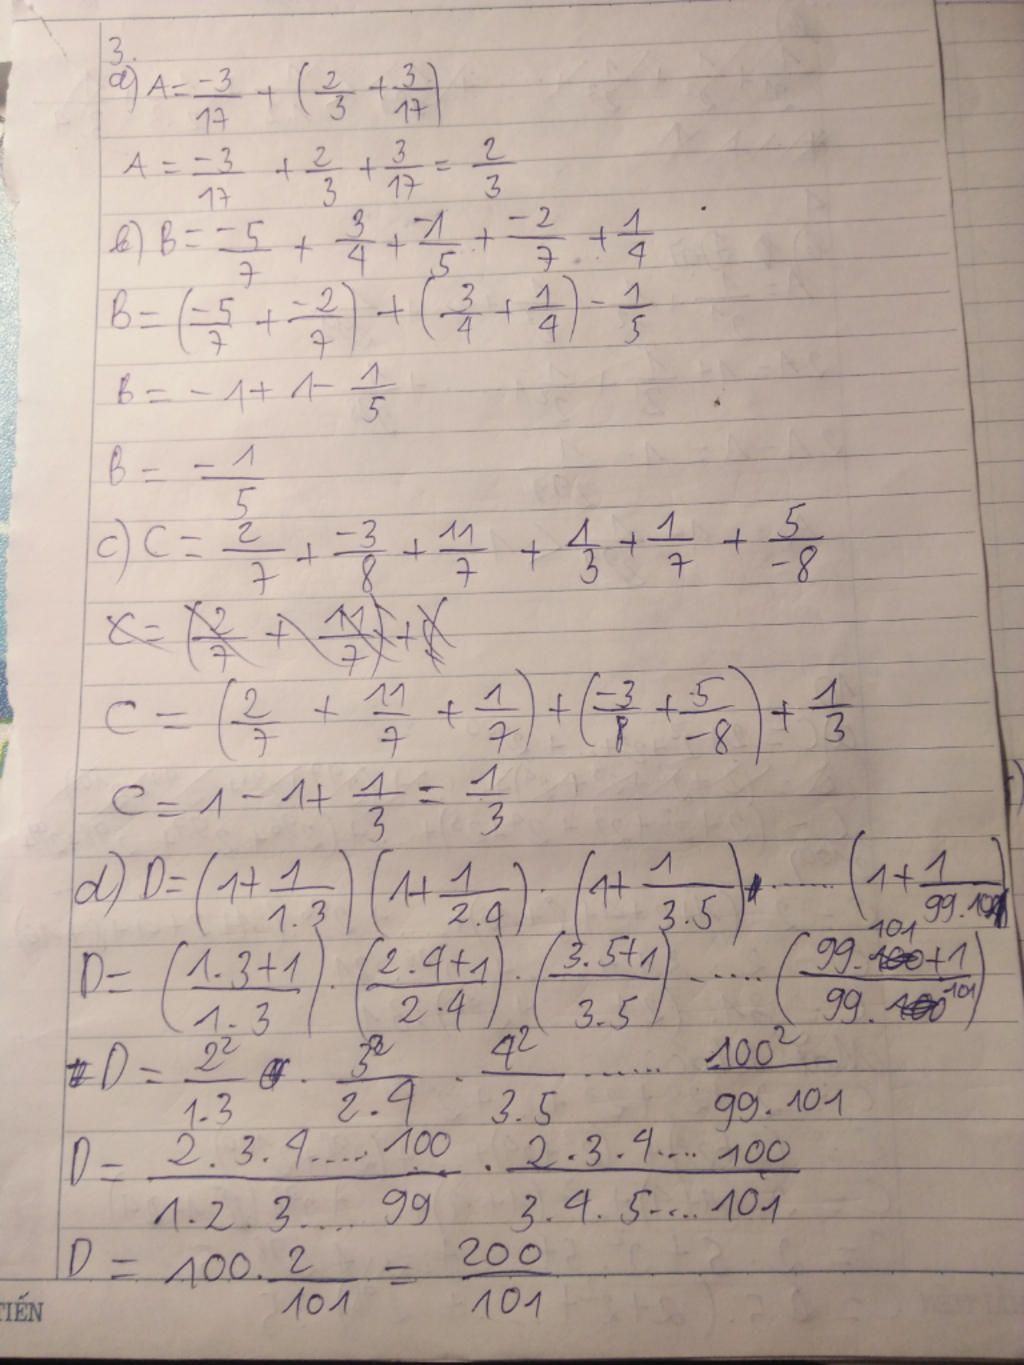 3.
a) A = -3/17 + (2/3 + 3/17)
A = -3/17 + 2/3 + 3/17 = 2/3
b) B = -5/7 + 3/4 + -1/5 + -2/7 + 1/4
B = (-5/7 + -2/7) + (3/4 + 1/4) - 1/5
B = -1 + 1 - 1/5
B = -1/5
c) C = 2/7 + -3/8 + 11/7 + 1/3 + 1/7 + 5/-8
C = (2/7 + 11/7 + 1/7) + (-3/8 + 5/-8) + 1/3
C = 1 - 1 + 1/3 = 1/3
d) D = (1 + 1/1.3) (1 + 1/2.4) . (1 + 1/3.5) . ..... (1 + 1/99.101)
D = (1.3+1/1.3) . (2.4+1/2.4) . (3.5+1/3.5) ..... (99.101+1/99.101)
D = 2²/1.3 . 3²/2.4 . 4²/3.5 ...... 100²/99.101
D = 2.3.4.....100/1.2.3.....99 . 2.3.4....100/3.4.5.....101
D = 100 . 2/101 = 200/101
TIẾN